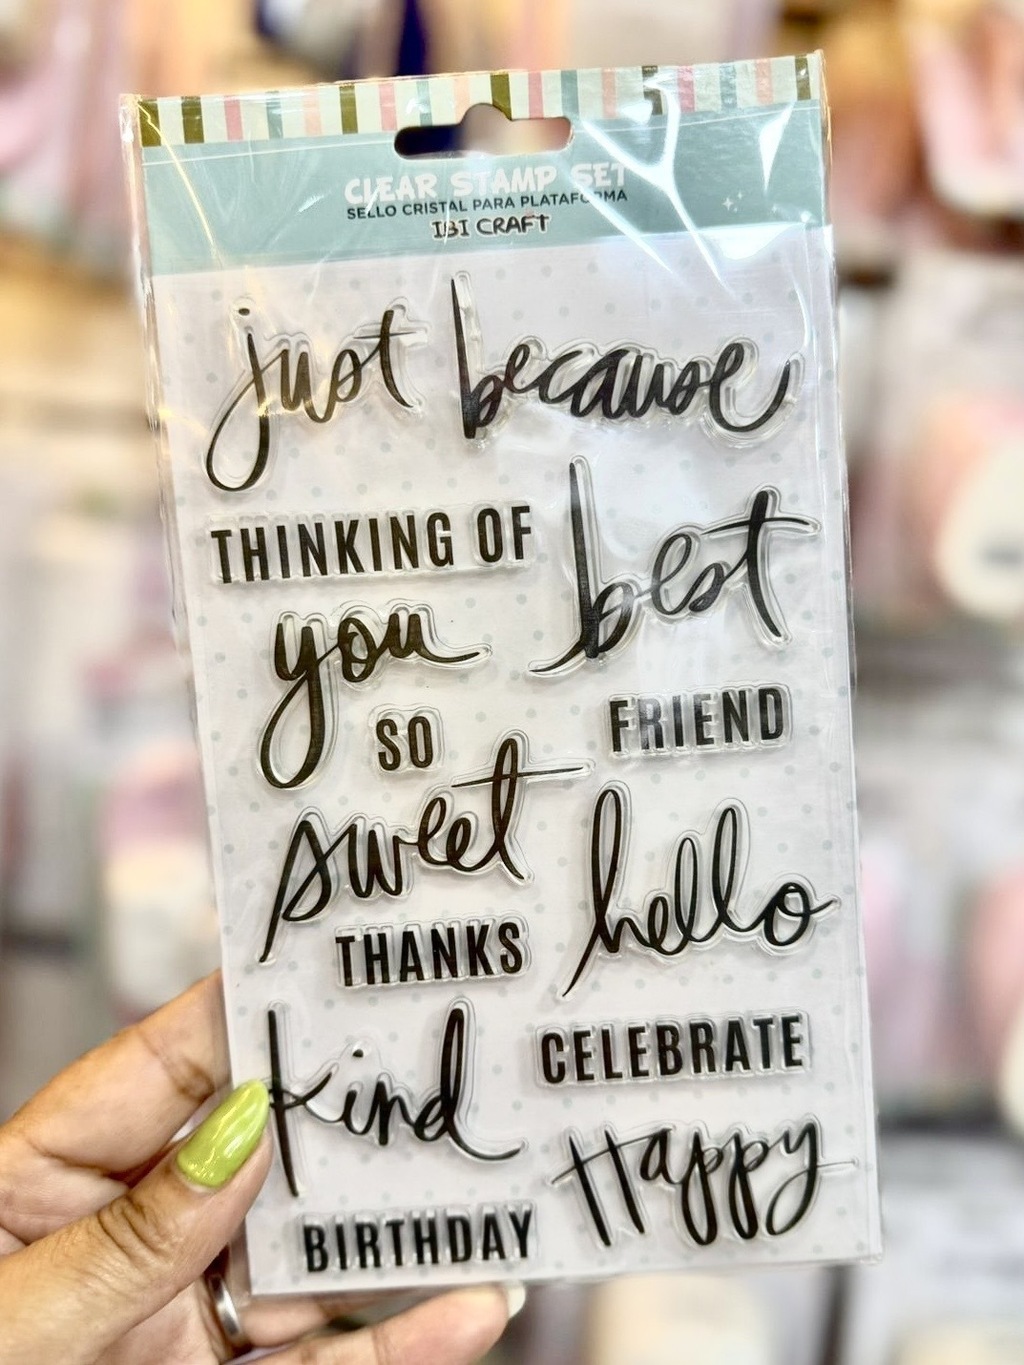 CLEAR STAMP SET
SELLO CRISTAL PARA PLATAFORMA
IBI CRAFT
just because
THINKING OF
you
best
SO
FRIEND
sweet
hello
THANKS
kind
CELEBRATE
Happy
BIRTHDAY